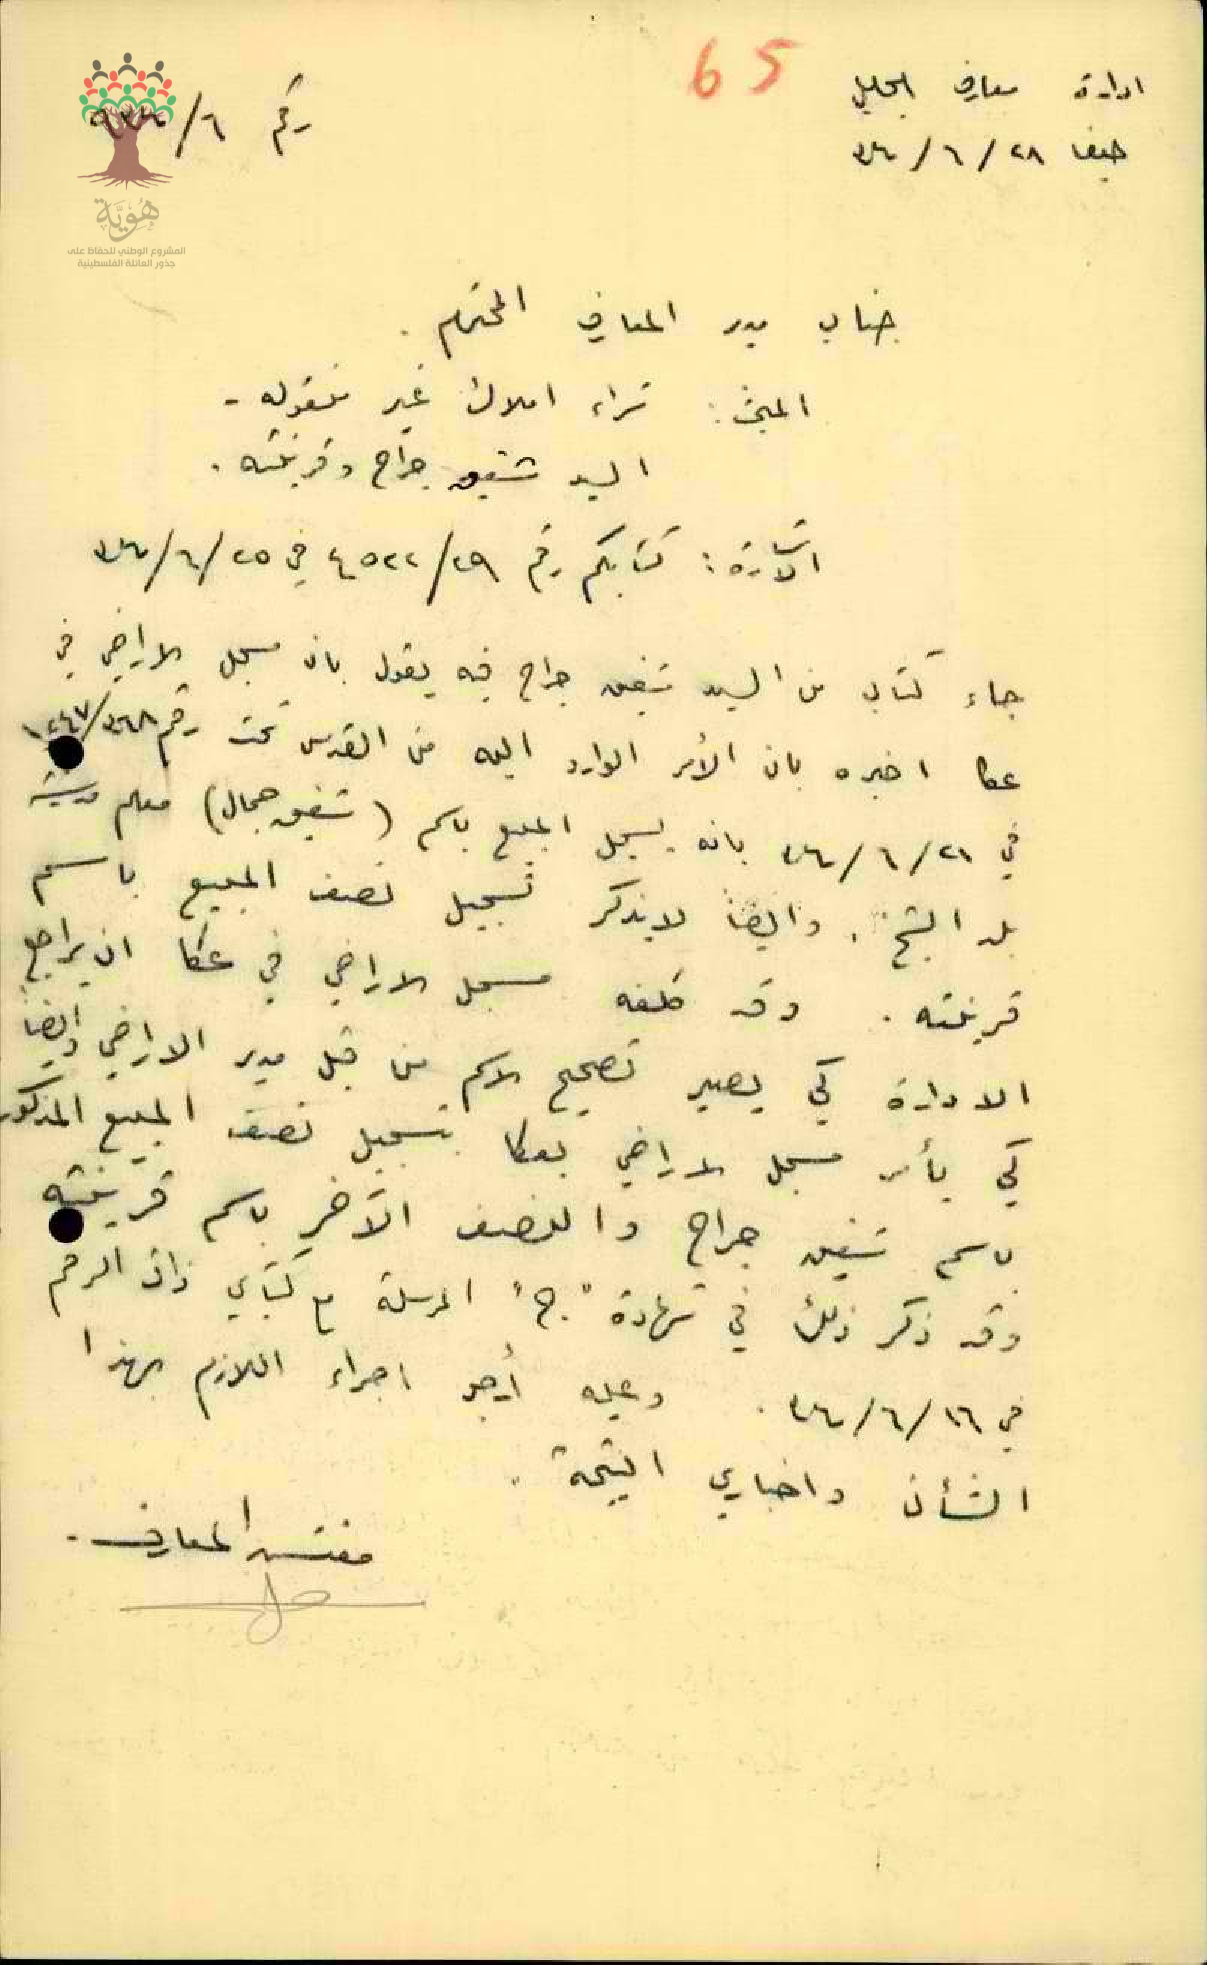 65
ادارة معارف الجليل
حيفا ٢٨/٦/٣٤
رقم ٦/
هُوِيَّة
المشروع الوطني للحفاظ على
جذور العائلة الفلسطينية
جناب مدير المعارف المحترم .
المبحث : شراء املاك غير منقوله -
السيد شفيق جراح وقرينته .
الاشارة : كتابكم رقم ٤٥٢٢/٢٩ في ٢٥/٦/٣٤
جاء كتاب من السيد شفيق جراح فيه يقول بان مسجل الاراضي في
عكا اخبره بان الأمر الوارد اليه من القدس تحت رقم
في ٢١/٦/٣٤ بانه يسجل المبيع باسم (شفيق جمال) معلم مدرسة
بلد الشيخ . وايضاً لا يذكر تسجيل نصف المبيع باسم
قرينته . وقد كلفه مسجل الاراضي في عكا ان يراجع
الادارة كي يصير تصحيح الاسم من قبل مدير الاراضي وايضاً
كي يأمر مسجل الاراضي بعكا بتسجيل نصف المبيع المذكور
باسم شفيق جراح والنصف الآخر باسم قرينته
وقد ذكر ذلك في شهادة "ج" المرسلة مع كتابي ذات الرقم
في ١٦/٦/٣٤ . وعليه أرجو اجراء اللازم بهذا
الشأن واخباري النتيجة .
مفتش المعارف .